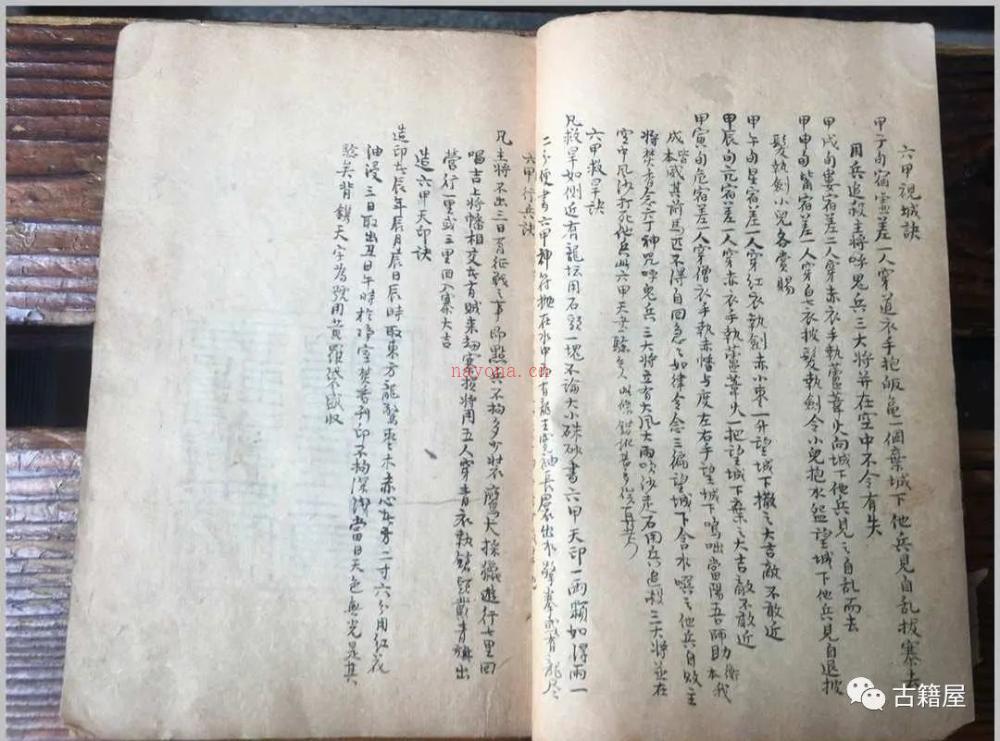 六甲視城訣
甲子旬宿虛差一人穿道衣手抱皈龜一個棄城下他兵見自乱拔寨去
用兵追殺主將呼鬼兵三大將并在空中不令有失
甲戌旬婁宿差二人穿赤衣手執蘆葦火向城下他兵見之自乱而去
甲申旬觜宿差一人穿白衣披髮執劍令小兒抱水盆望城下他兵見自退披
髮執劍小兒各賞賜
甲午旬星宿差一人穿紅衣執劍赤小棗一升望城下撒之大吉敵不敢近
甲辰旬亢宿差一人穿赤衣手執蘆葦火一把望城下棄之大吉敵不敢近
甲寅旬危宿差一人穿僧衣手執赤幡与度左右手望城下鳴咄當陽吾師助我
成本威其前馬匹不得自回急急如律令念三遍望城下含水噀之他兵自敗主
將焚香念六丁神咒呼鬼兵三大將立有大風大雨吹沙走石用兵追殺三大將並在
空中風沙打死他兵此六甲天書驗矣
六甲救旱訣
凡救旱如側近有龍坛用石頭一塊不論大小硃砂書六甲天印一兩顆如得雨一
二分便書六甲神符抛在水中
六甲行兵訣
凡主將不出三日有征戰之事即點兵不拘多少財不鷹犬採獵遊行七里回
唱吉上將幡相交若有賊來刼寨投將用五人穿青衣執鎗頭戴青旗出
營行一里或三里回入寨大吉
造六甲天印訣
造印於辰年辰月辰日辰時取東方龍驚棗木赤心二寸六分用紅花
油浸三日取出丑日午時於淨室焚香刊印不拘深浅當日天色無光是其
驗矣背鐫天字為號用黄羅袋盛收
nayona.cn
古籍屋